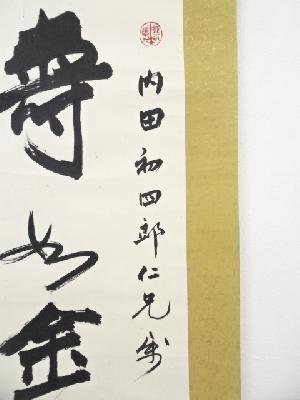 内田初四郎仁兄
壽如金